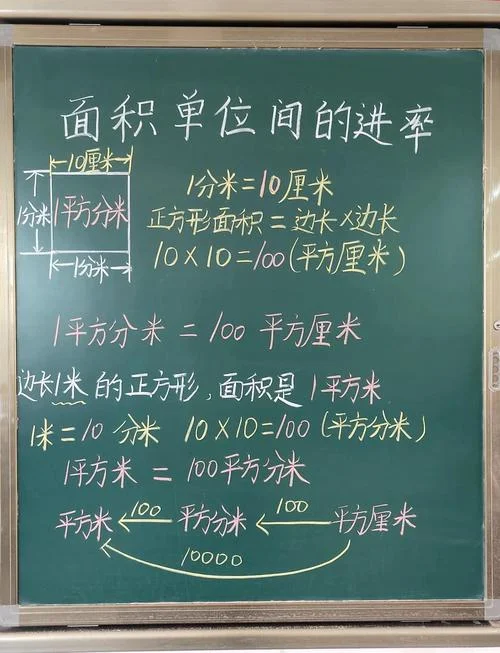 面积单位间的进率
10厘米
1分米
1平方分米
1分米
1分米=10厘米
正方形面积=边长×边长
10×10=100(平方厘米)
1平方分米=100平方厘米
边长1米的正方形,面积是1平方米
1米=10分米 10×10=100(平方分米)
1平方米=100平方分米
平方米 100 平方分米 100 平方厘米
10000